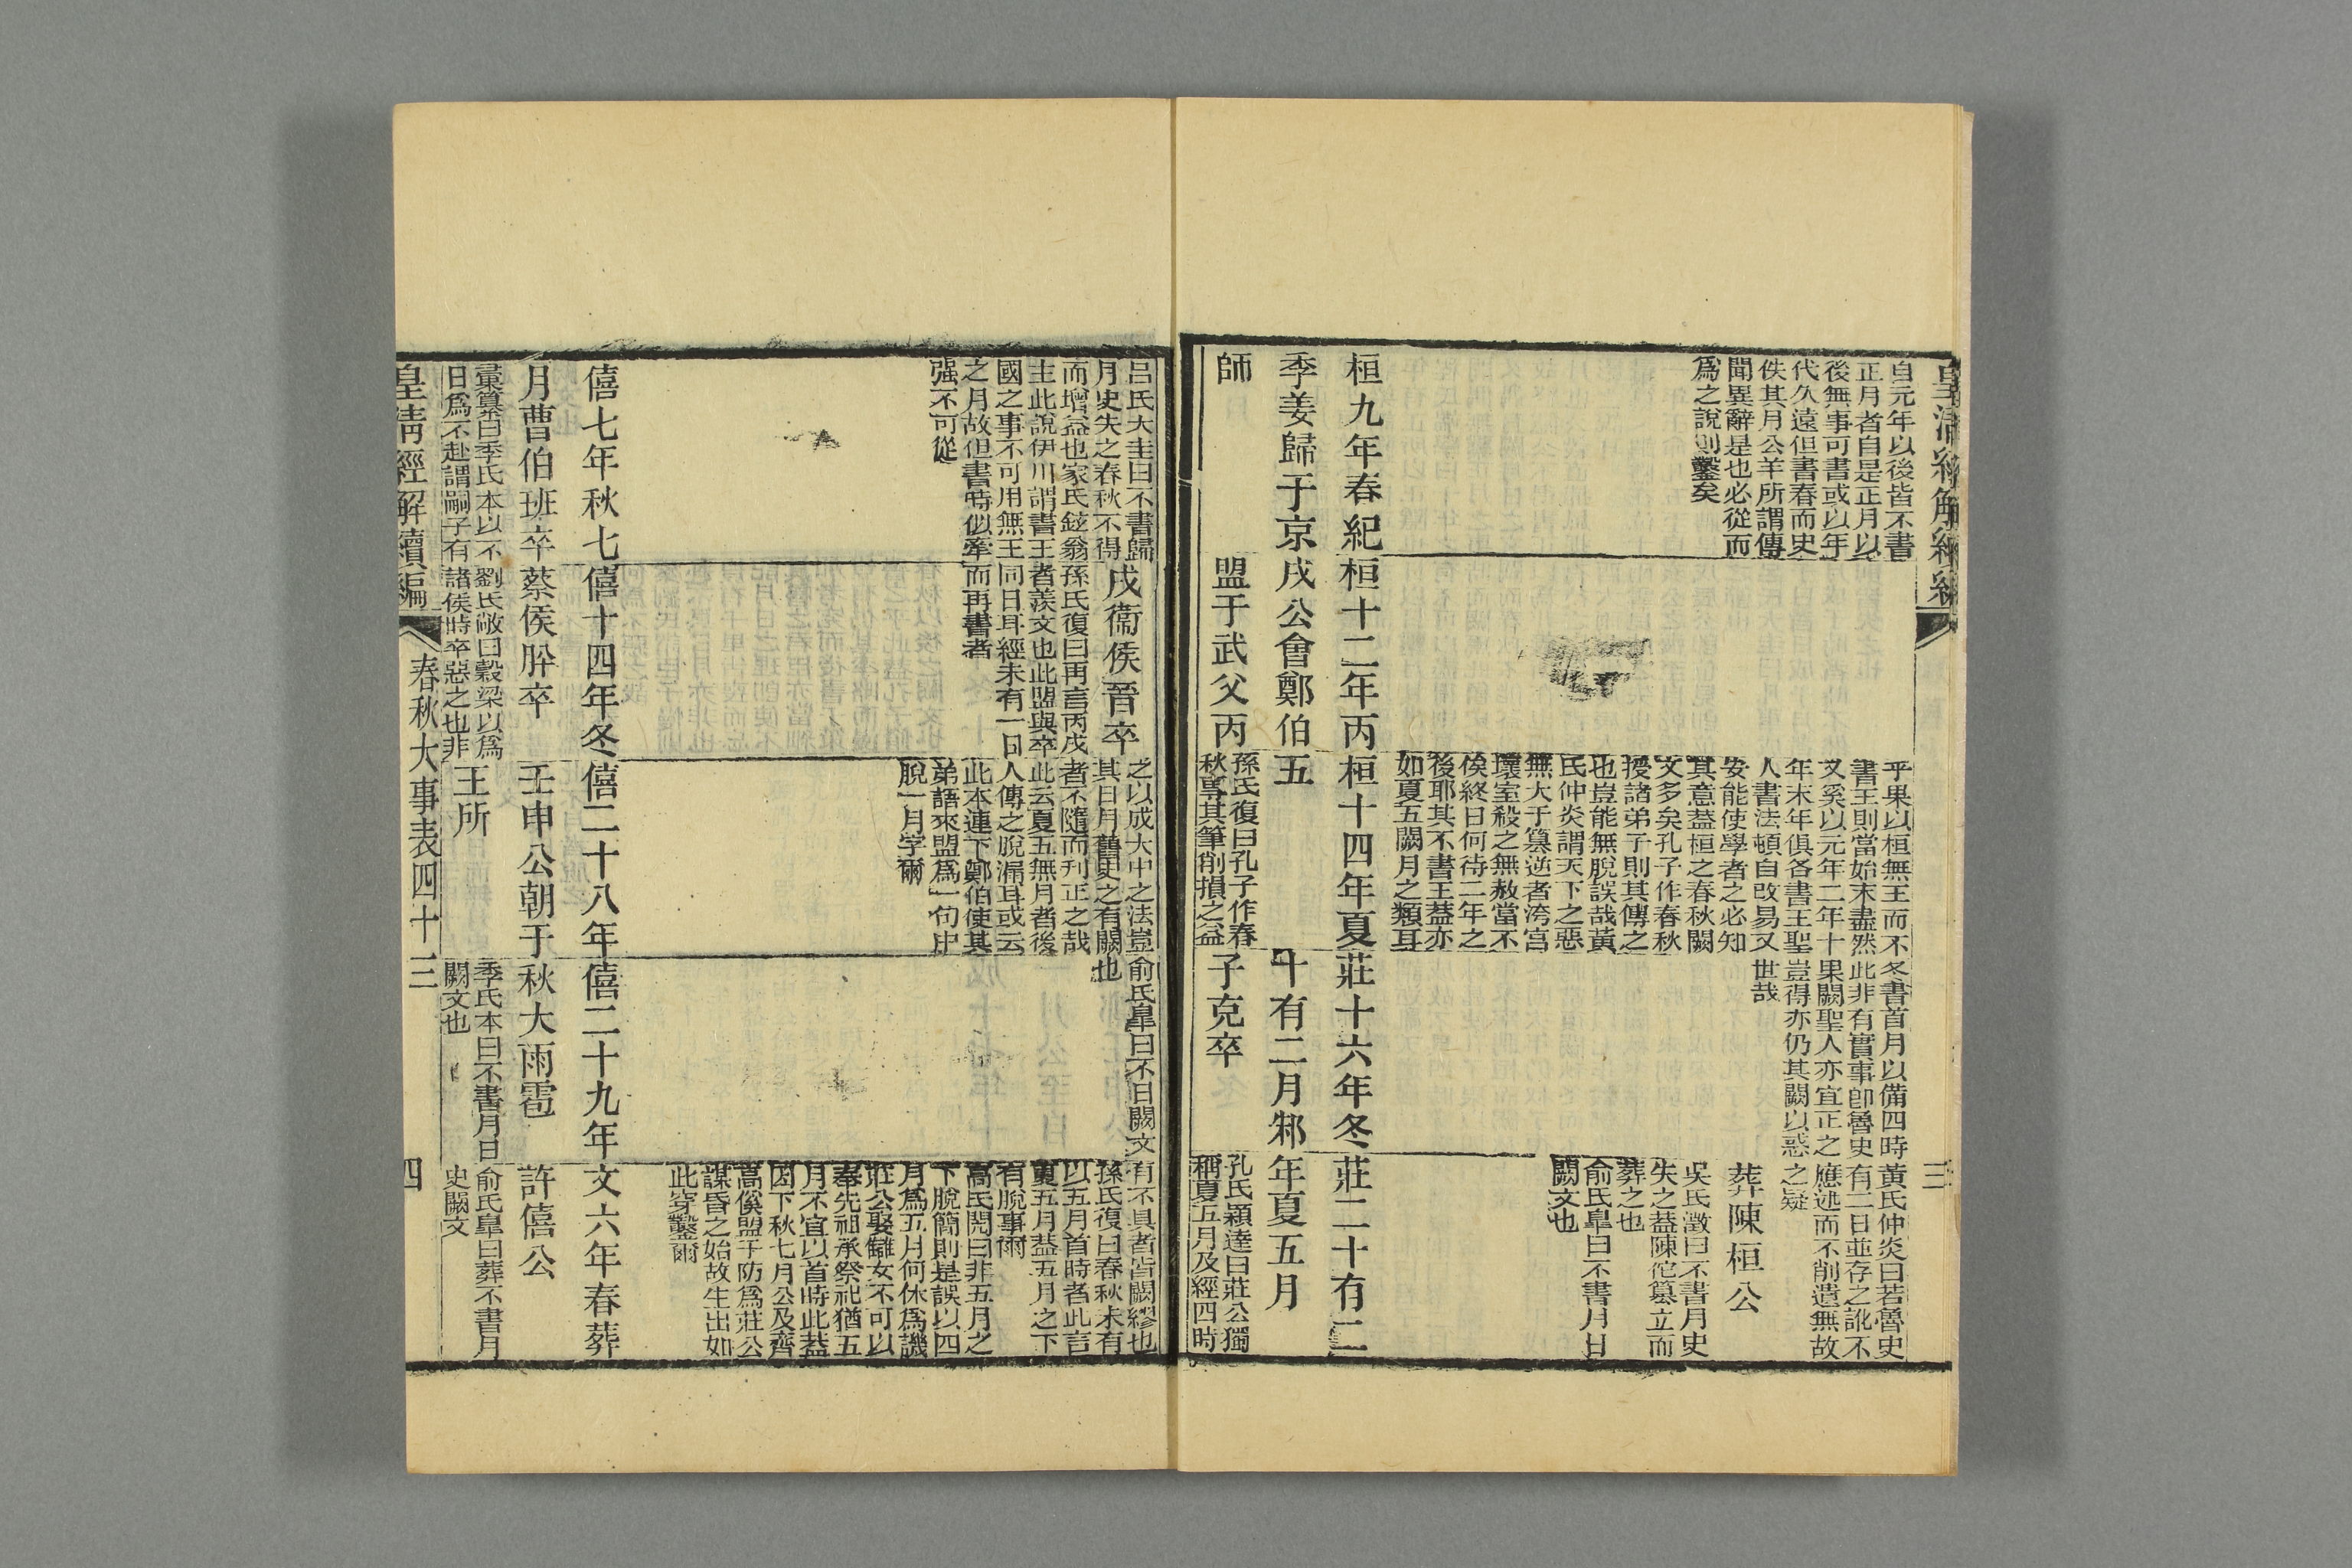 皇清經解續編
三
自元年以後皆不書
正月者自是正月以
後無事可書或以年
代久遠但書春而史
佚其月公羊所謂傳
聞異辭是也必從而
爲之說則鑿矣
桓九年春紀
季姜歸于京
師
桓十二年丙
戌公會鄭伯
盟于武父丙
乎果以桓無王而不
書王則當始末盡然
又奚以元年二年十
年末年俱各書王聖
人書法頓自改易又
安能使學者之必知
其意蓋桓之春秋闕
文多矣孔子作春秋
授諸弟子則其傳之
也豈能無脫誤哉黃
氏仲炎謂天下之惡
無大于篡逆者洿宮
壞室殺之無赦當不
俟終日何待二年之
後耶其不書王蓋亦
如夏五闕月之類耳
桓十四年夏
五
孫氏復曰孔子作春
秋專其筆削損之益
冬書首月以備四時
此非有實事卽魯史
果闕聖人亦宜正之
豈得亦仍其闕以惑
世哉
莊十六年冬
十有二月邾
子克卒
黃氏仲炎曰若魯史
有二日並存之訛不
應述而不削遺無故
之疑
葬陳桓公
吳氏澂曰不書月史
失之蓋陳佗篡立而
葬之也
俞氏臯曰不書月日
闕文也
莊二十有二
年夏五月
孔氏穎達曰莊公獨
稱夏五月及經四時
呂氏大圭曰不書歸
月史失之春秋不得
而增益也家氏鉉翁
主此說伊川謂書王
國之事不可用無王
之月故但書時似牽
强不可從
僖七年秋七
月曹伯班卒
彙纂曰季氏本以不
日爲不赴謂嗣子有
戌衞侯晉卒
孫氏復曰再言丙戌
者羨文也此盟與卒
同日耳經未有一日
而再書者
僖十四年冬
蔡侯肸卒
劉氏敞曰穀梁以爲
諸侯時卒惡之也非
之以成大中之法豈
其日月舊史之有闕
者不隨而刋正之哉
此云夏五無月者後
人傳之脫漏耳或云
此本連下鄭伯使其
弟語來盟爲一句中
脫一月字爾
僖二十八年
壬申公朝于
王所
也
俞氏臯曰不日闕文
僖二十九年
秋大雨雹
季氏本曰不書月日
闕文也
有不具者皆闕繆也
孫氏復曰春秋未有
以五月首時者此言
夏五月蓋五月之下
有脫事爾
高氏閌曰非五月之
下脫簡則是誤以四
月爲五月何休爲譏
莊公娶讎女不可以
奉先祖承祭祀猶五
月不宜以首時此蓋
因下秋七月公及齊
高傒盟于防爲莊公
謀昏之始故生出如
此穿鑿爾
文六年春葬
許僖公
俞氏臯曰葬不書月
史闕文
皇清經解續編
春秋大事表四十三
四